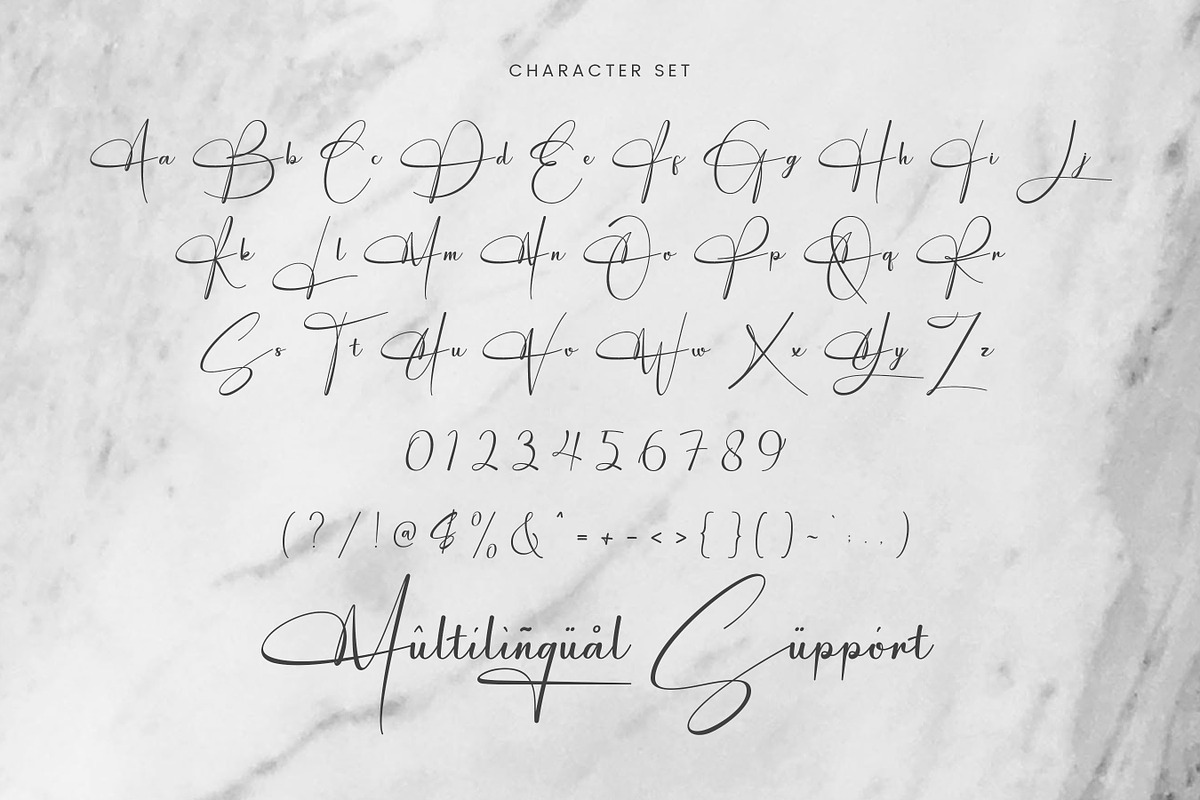 CHARACTER SET
Aa Bb Cc Dd Ee Ff Gg Hh Ii Jj
Kk Ll Mm Nn Oo Pp Qq Rr
Ss Tt Uu Vv Ww Xx Yy Zz
0123456789
(?/!@$%&^=+-<>{}()~`:..)
Mûltílìñgüål Süppórt